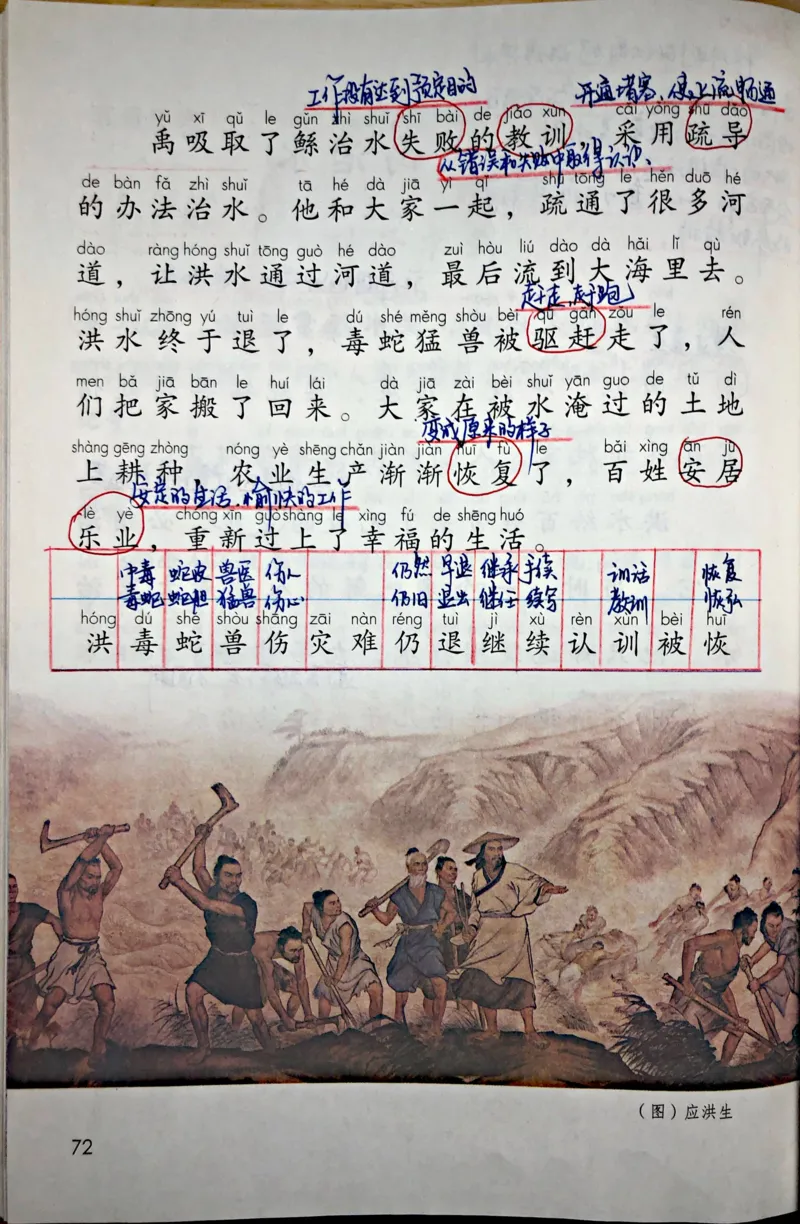 工作没有达到预定目的 开通堵塞，使上流畅通
yǔ xī qǔ le gǔn zhì shuǐ shī bài de jiào xùn cǎi yòng shū dǎo
禹吸取了鲧治水失败的教训，采用疏导
从错误和失败中取得认识。
de bàn fǎ zhì shuǐ tā hé dà jiā yì qǐ shū tōng le hěn duō hé
的办法治水。他和大家一起，疏通了很多河
dào ràng hóng shuǐ tōng guò hé dào zuì hòu liú dào dà hǎi lǐ qù
道，让洪水通过河道，最后流到大海里去。
赶走，赶跑
hóng shuǐ zhōng yú tuì le dú shé měng shòu bèi qū gǎn zǒu le rén
洪水终于退了，毒蛇猛兽被驱赶走了，人
men bǎ jiā bān le huí lái dà jiā zài bèi shuǐ yān guo de tǔ dì
们把家搬了回来。大家在被水淹过的土地
变成原来的样子
shàng gēng zhòng nóng yè shēng chǎn jiàn jiàn huī fù le bǎi xìng ān jū
上耕种，农业生产渐渐恢复了，百姓安居
安定的生活，愉快的工作
lè yè chóng xīn guò shàng le xìng fú de shēng huó
乐业，重新过上了幸福的生活。
中毒 蛇皮 兽医 伤人 仍然 早退 继承 手续 训话 恢复
毒蛇 蛇胆 猛兽 伤心 仍旧 退出 继任 续写 教训 恢弘
hóng dú shé shòu shāng zāi nàn réng tuì jì xù rèn xùn bèi huī
洪 毒 蛇 兽 伤 灾 难 仍 退 继 续 认 训 被 恢
（图）应洪生
72